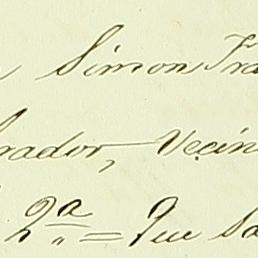 Simon Fra
rador, Vecin
2ª = Que Sa